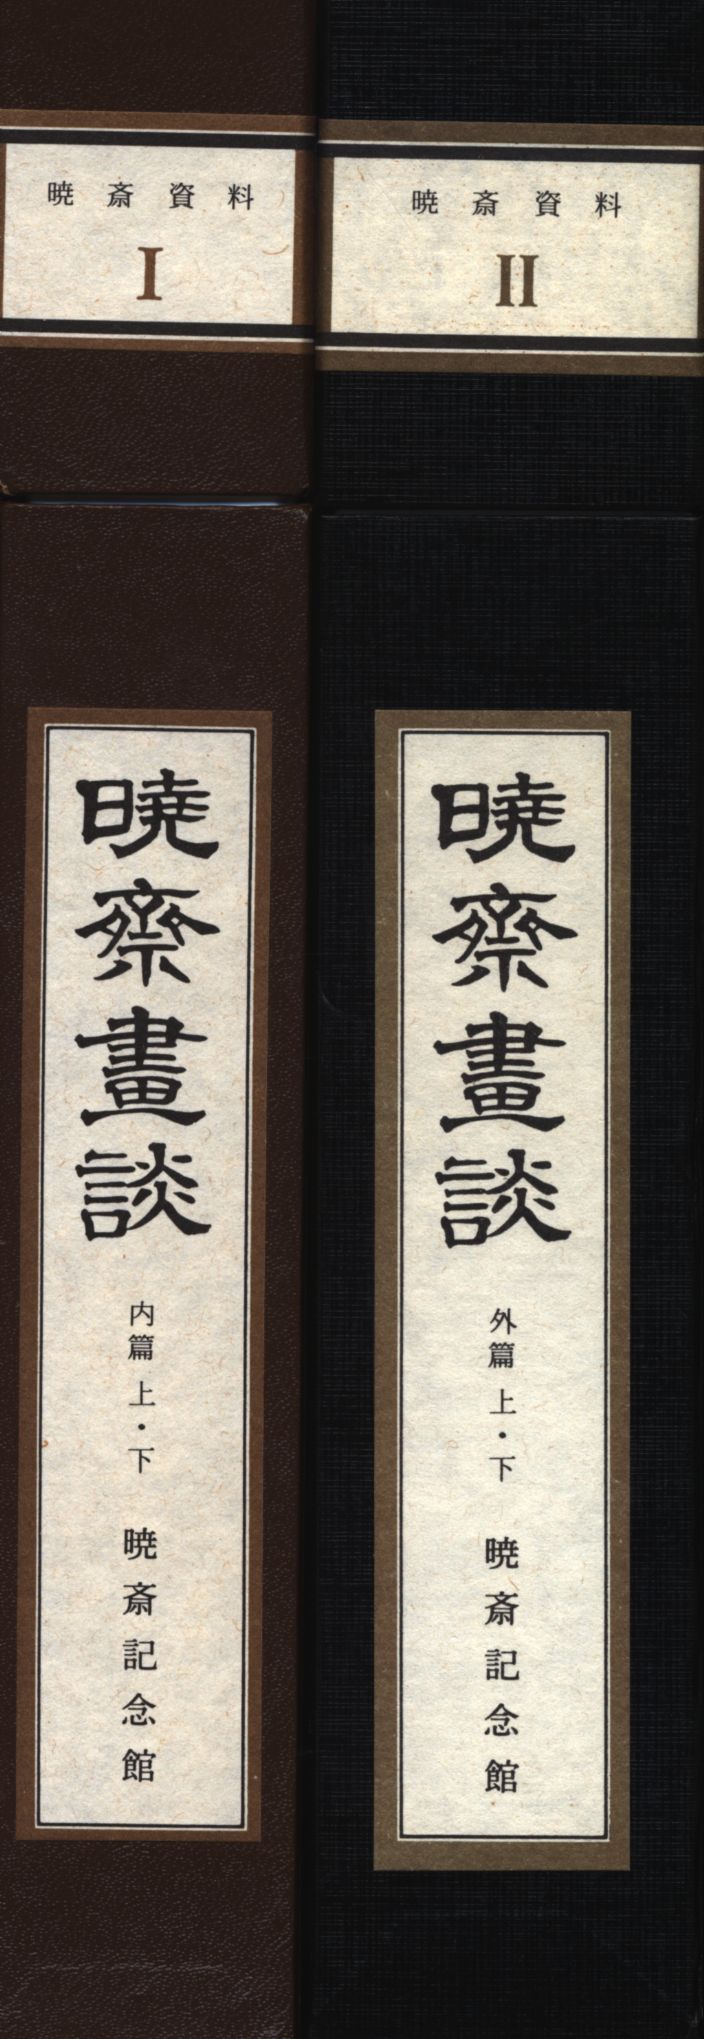 暁斎資料
I
暁斎畫談
内篇 上・下
暁斎記念館
暁斎資料
II
暁斎畫談
外篇 上・下
暁斎記念館